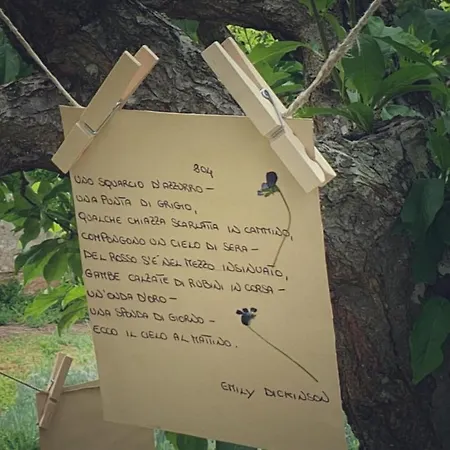 204
UNO SQUARCIO D'AZZURRO –
UNA PUNTA DI GRIGIO,
QUALCHE CHIAZZA SCARLATTA IN CAMMINO,
COMPONGONO UN CIELO DI SERA –
DEL ROSSO S'È NEL MEZZO INSINUATO,
GAMBE CALZATE DI RUBINI IN CORSA –
UN'ONDA D'ORO –
UNA SPONDA DI GIORNO –
ECCO IL CIELO AL MATTINO.
EMILY DICKINSON